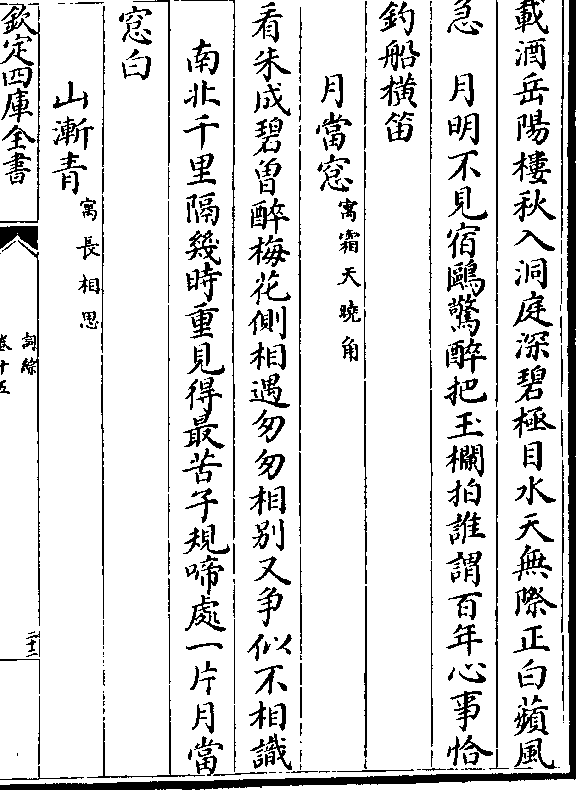 載酒岳陽樓秋入洞庭深碧極目水天無際正白蘋風
急　月明不見宿鷗驚醉把玉欄拍誰謂百年心事恰
釣船橫笛
月當窓寓霜天曉角
看朱成碧曽醉梅花側相遇匆匆相别又争似不相識
南北千里隔幾時重見得最苦子規啼處一片月當
窓白
山漸青寓長相思
欽定四庫全書
詞綜
卷十五
二十二